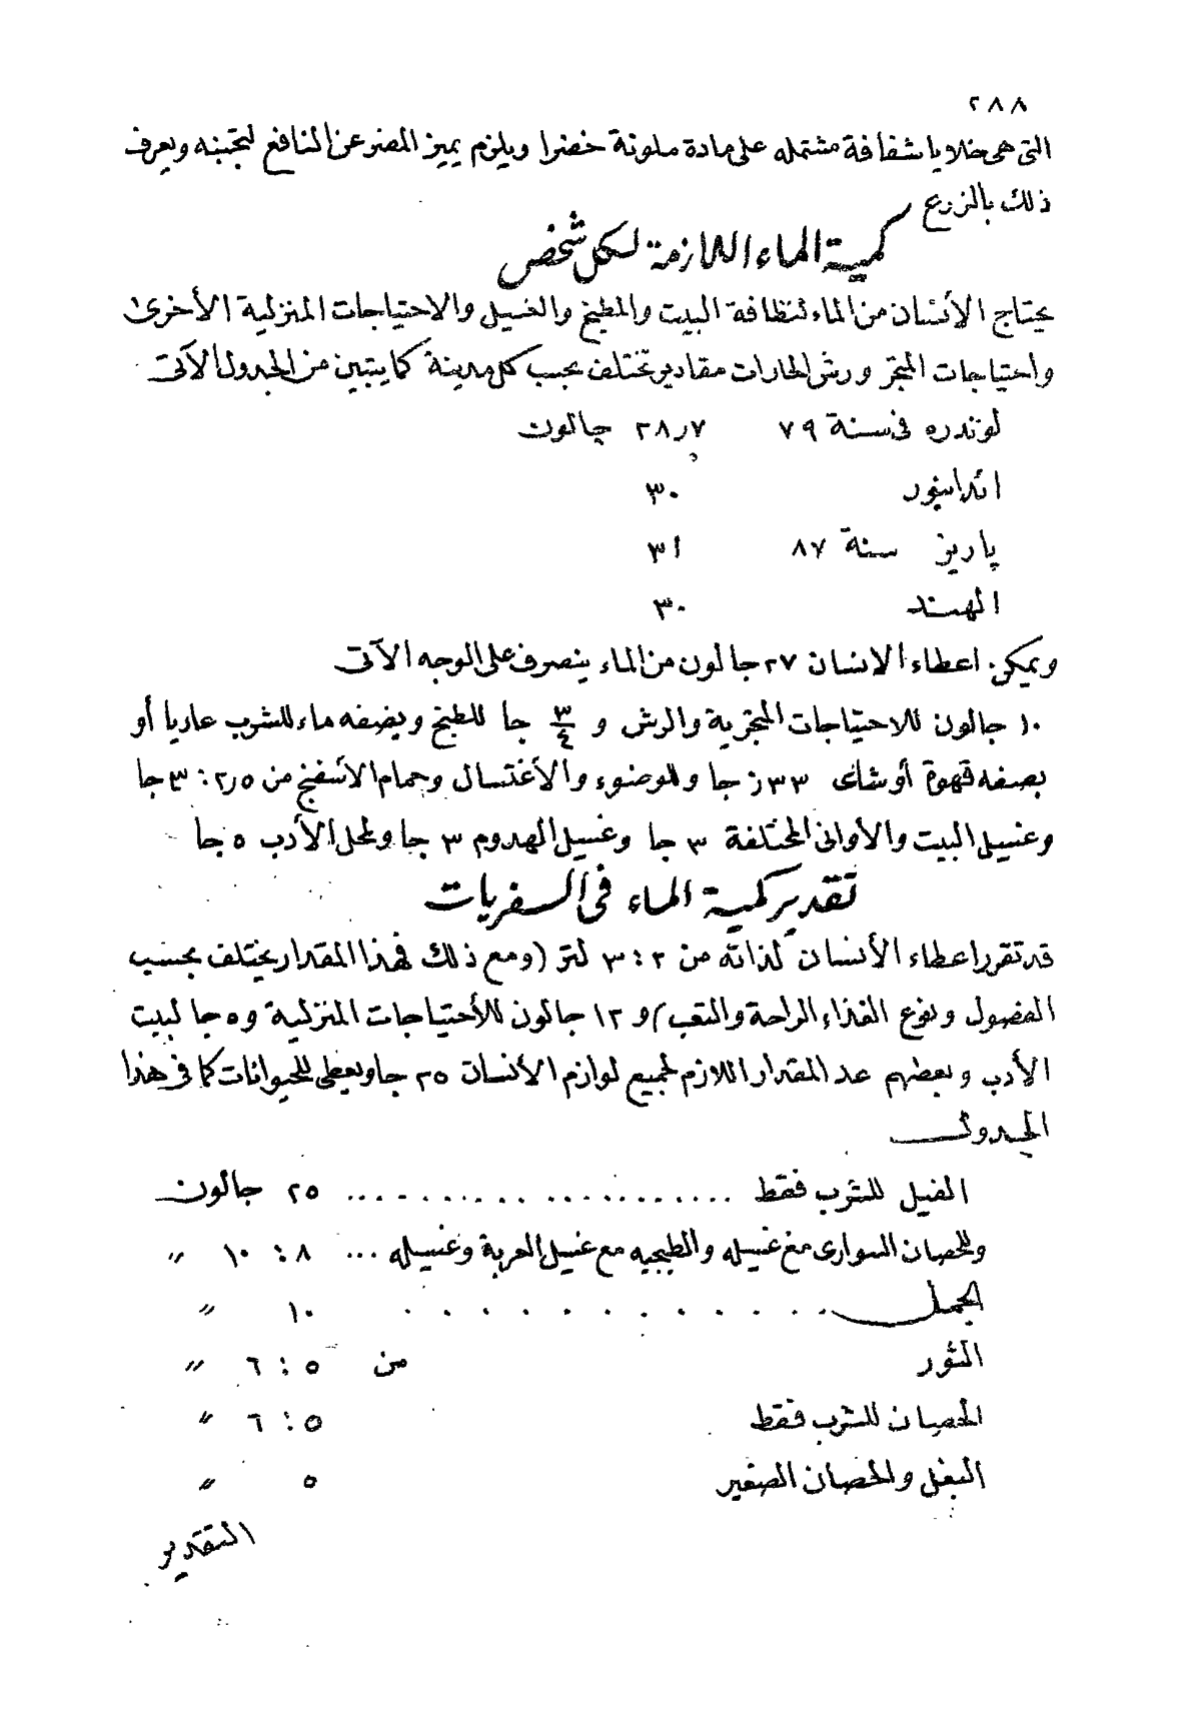 ٢٨٨
التى هى خلايا شفافة مشتمله على مادة ملونة خضرا ويلزم يميز المضر عن النافع لتجنبنه ويعرف
ذلك بالزرع
كمية الماء اللازمة لكل شخص
يحتاج الأنسان من الماء لنظافة البيت والمطبخ والغسيل والاحتياجات المنزلية الأخرى
واحتياجات المتجر ورش الحارات مقادير تختلف بحسب كل مدينة كما يتبين من الجدول الآتى
لوندره فى سنة ٧٩ ٢٨٫٧ جالون
ائدانبور ٣٠
پاريز سنة ٨٧ ٣١
الهند ٣٠
ويمكن اعطاء الانسان ٢٧ جالون من الماء ينصرف على الوجه الآتى
١٠ جالون للاحتياجات المتجرية والرش و ٣/٤ جا للطبخ ويضفه ماء للشرب عاريا أو
بصفه قهوة أو شاى ٣٣ر جا وللوضوء والأغتسال وحمام الأسفنج من ٢٫٥ : ٣ جا
وغسيل البيت والأوانى المختلفة ٣ جا وغسيل الهدوم ٣ جا ولمحل الأدب ٥ جا
تقدير كمية الماء فى السفريات
قد تقرر اعطاء الأنسان لذاته من ٢ : ٣ لتر (ومع ذلك فهذا المقدار يختلف بحسب
الفصول ونوع الغذاء الراحة والتعب) و ١٢ جالون للأحتياجات المنزلية و ٥ جا لبيت
الأدب وبعضهم عد المقدار اللازم لجميع لوازم الأنسان ٢٥ جا ويعطى للحيوانات كما فى هذا
الجدول
الفيل للشرب فقط .................... ٢٥ جالون
وللحصان السوارى مع غسيله والطبجيه مع غسيل العربة وغسيله ... ٨ : ١٠ ״
الجمل . . . . . . . . . . . . . ١٠ ״
الثور من ٥ : ٦ ״
الحصان للشرب فقط ٥ : ٦ ״
البغل والحصان الصغير ٥ ״
التقدير